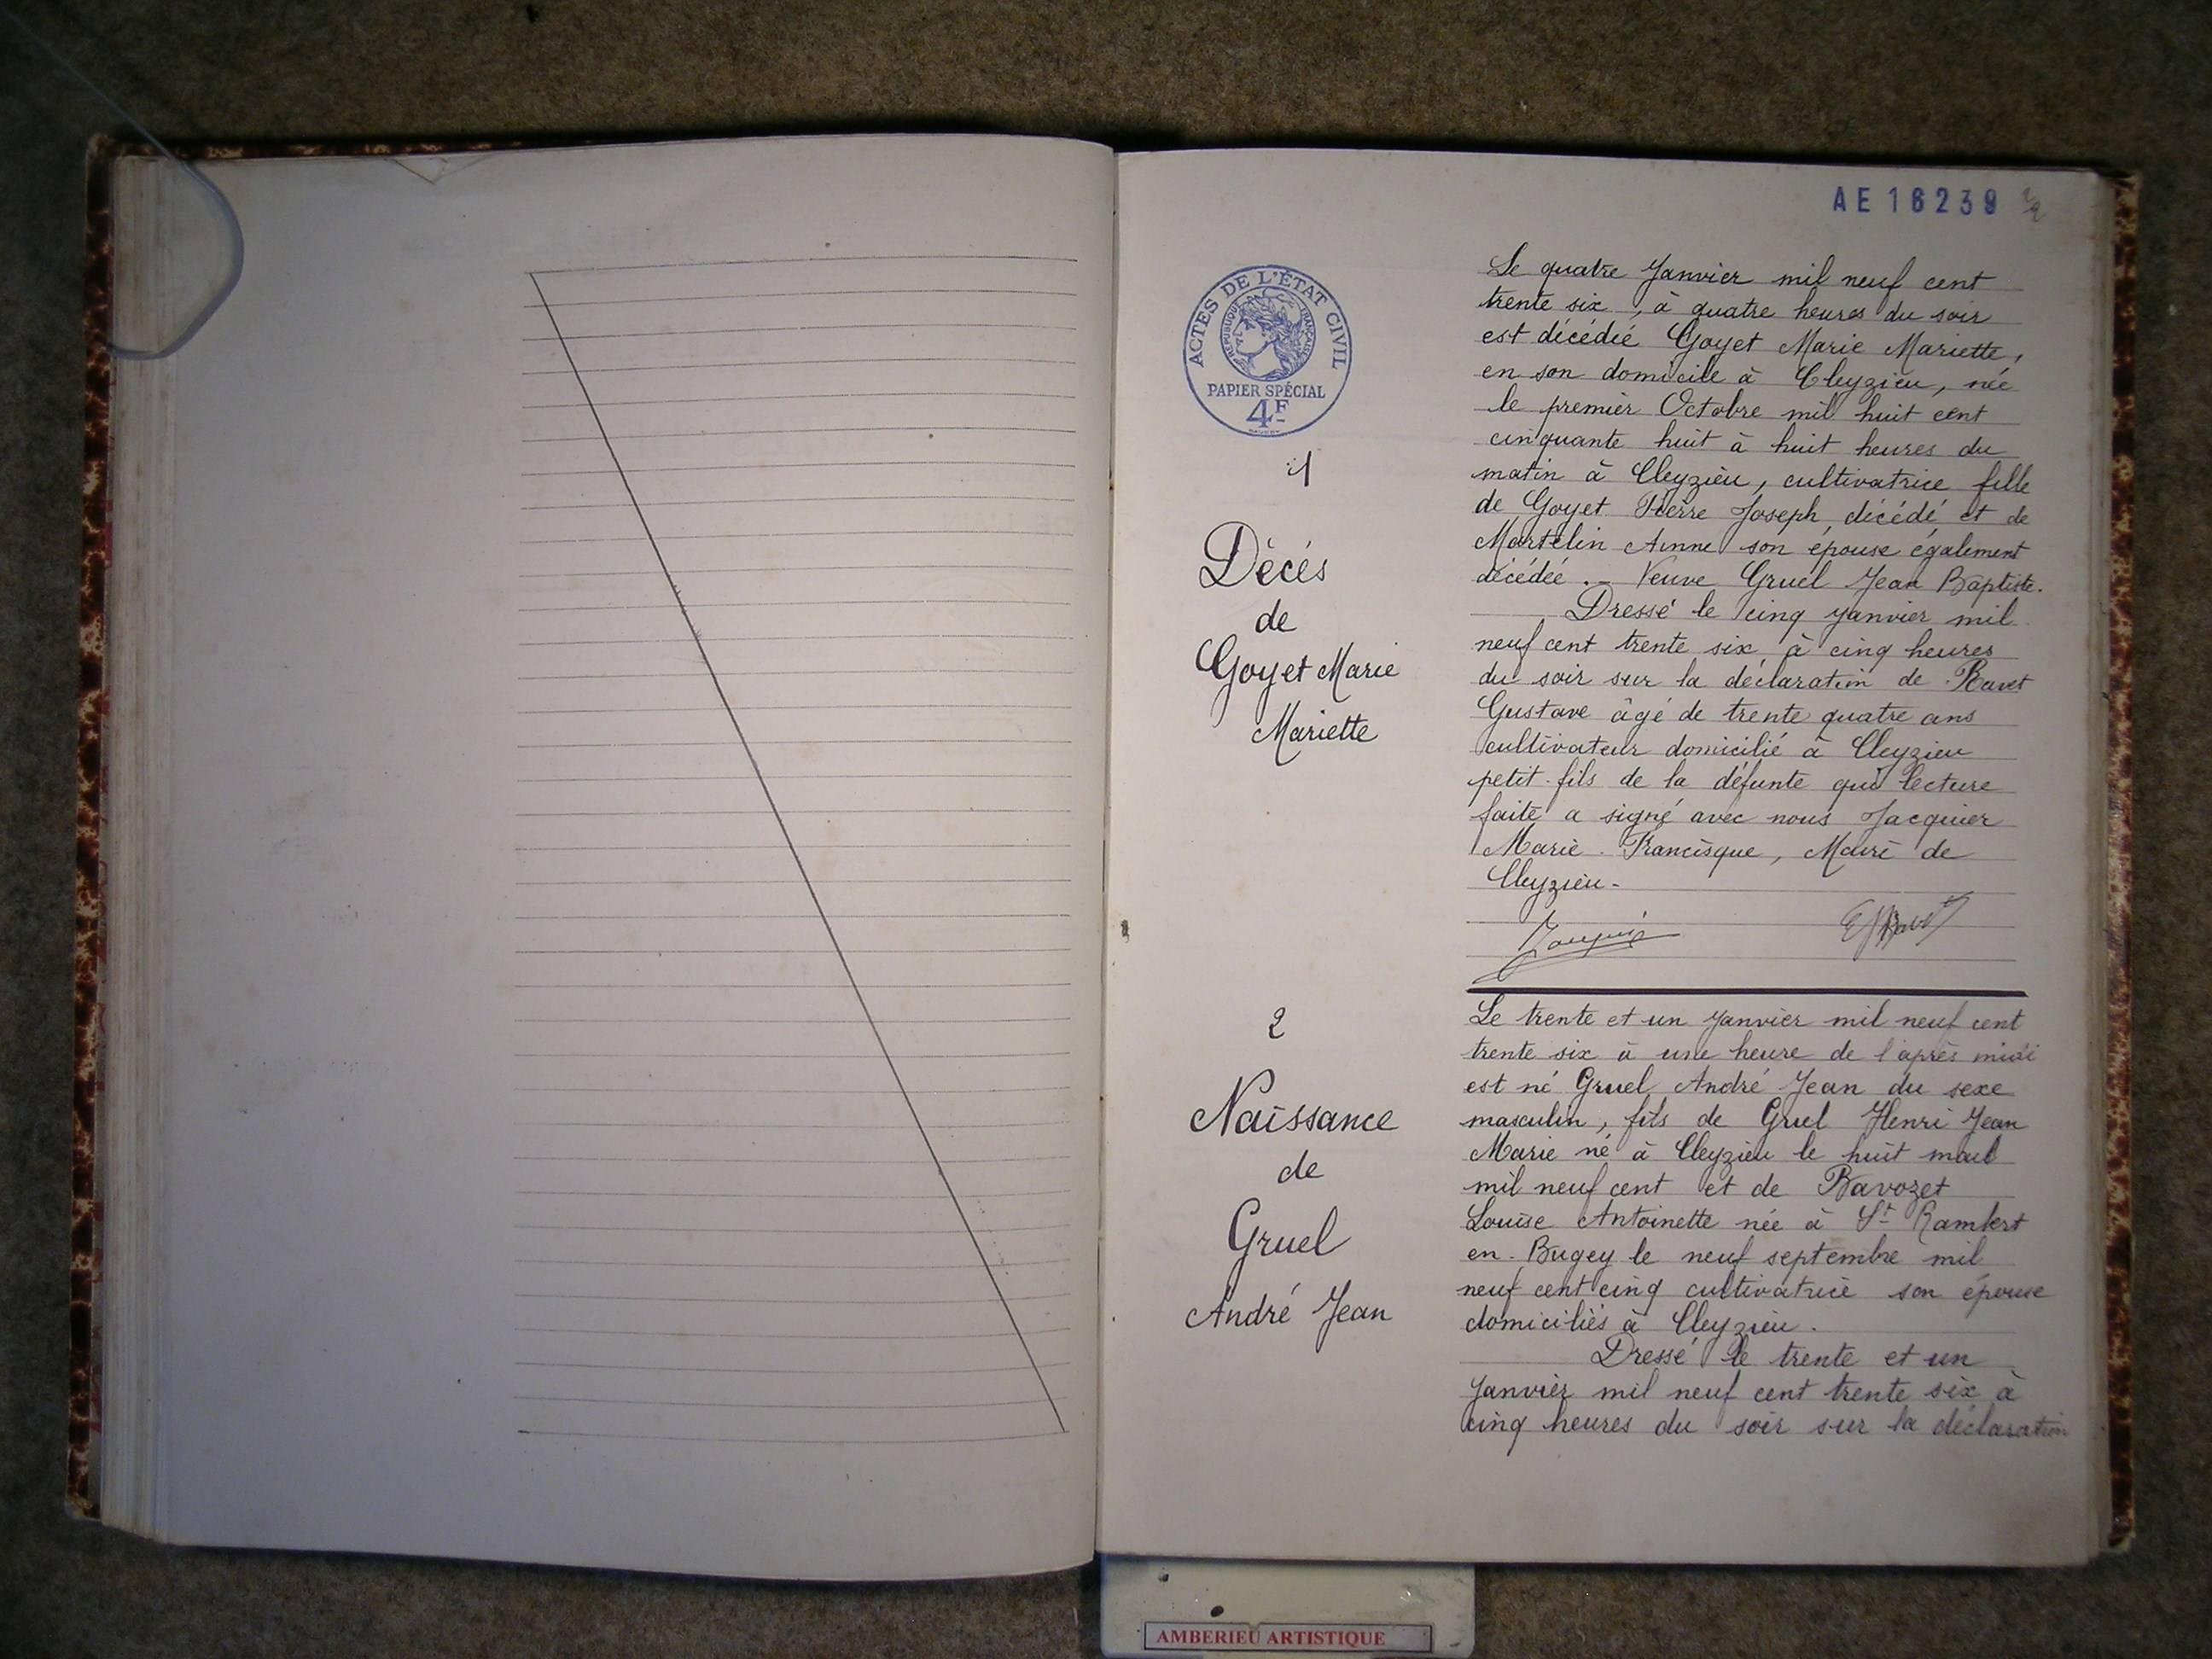 AE 16239
ACTES DE L'ÉTAT CIVIL
RÉPUBLIQUE FRANÇAISE
PAPIER SPÉCIAL
4F
1
Décès
de
Goyet Marie
Mariette
Le quatre Janvier mil neuf cent
trente six, à quatre heures du soir
est décédié Goyet Marie Mariette,
en son domicile à Cleyzieu, née
le premier Octobre mil huit cent
cinquante huit à huit heures du
matin à Cleyzieu, cultivatrice fille
de Goyet Pierre Joseph décédé et de
Martelin Anne son épouse également
décédée. - Veuve Gruel Jean Baptiste.
Dressé le cinq Janvier mil
neuf cent trente six à cinq heures
du soir sur la déclaration de Ravet
Gustave âgé de trente quatre ans
cultivateur domicilié à Cleyzieu
petit-fils de la défunte qui lecture
faite a signé avec nous Jacquier
Marie-Francisque, Maire de
Cleyzieu-
2
Naissance
de
Gruel
André Jean
Le trente et un Janvier mil neuf cent
trente six à une heure de l'après midi
est né Gruel André Jean du sexe
masculin, fils de Gruel Henri Jean
Marie né à Cleyzieu le huit
mil neuf cent et de Bavozet
Louise Antoinette née à St Rambert
en-Bugey le neuf septembre mil
neuf cent cinq cultivatrice son épouse
domiciliés à Cleyzieu.
Dressé le trente et un
Janvier mil neuf cent trente six à
cinq heures du soir sur la déclaration
AMBERIEU ARTISTIQUE